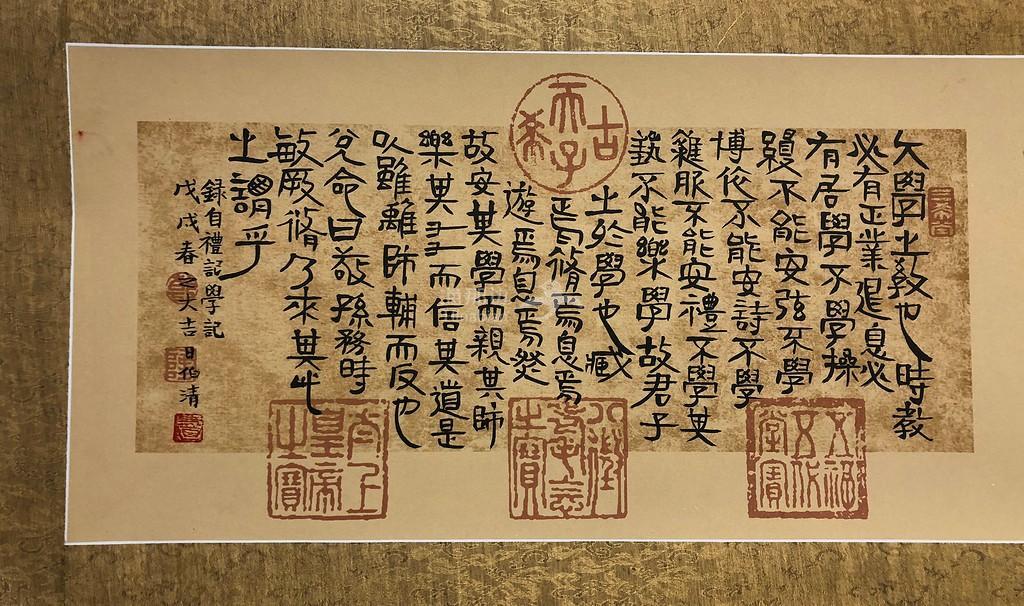 大學之教也時教
必有正業退息必
有居學不學操
縵不能安弦不學
博依不能安詩不學
雜服不能安禮不學其
藝不能樂學故君子
之於學也藏
焉脩焉息焉
遊焉息焉然
故安其學而親其師
樂其友而信其道是
以雖離師輔而反也
兌命曰敬孫務時
敏厥脩乃來其此
之謂乎
錄自禮記學記
戊戌春之大吉日伯清
古希天子
八徵耄念之寶
太上皇帝之寶